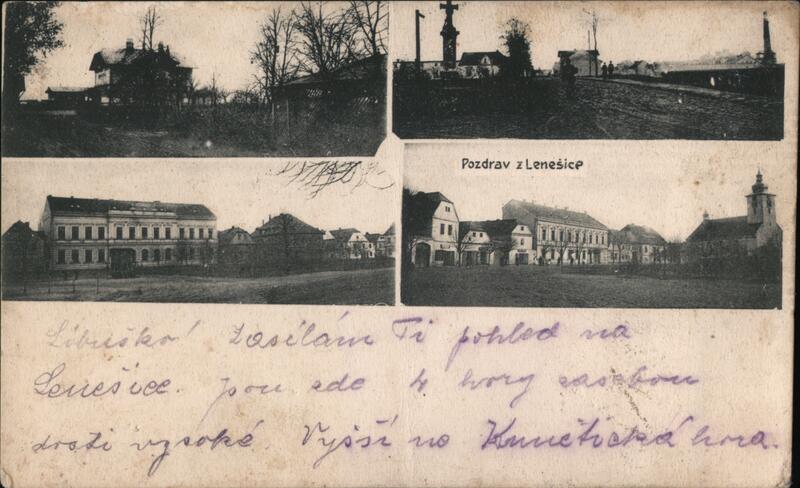 Pozdrav z Lenešic
Libuško! Zasílám Ti pohled na
Lenešice. Jsou zde 4 hory za sebou
dosti vysoké. Vyšší no Kunětická hora.